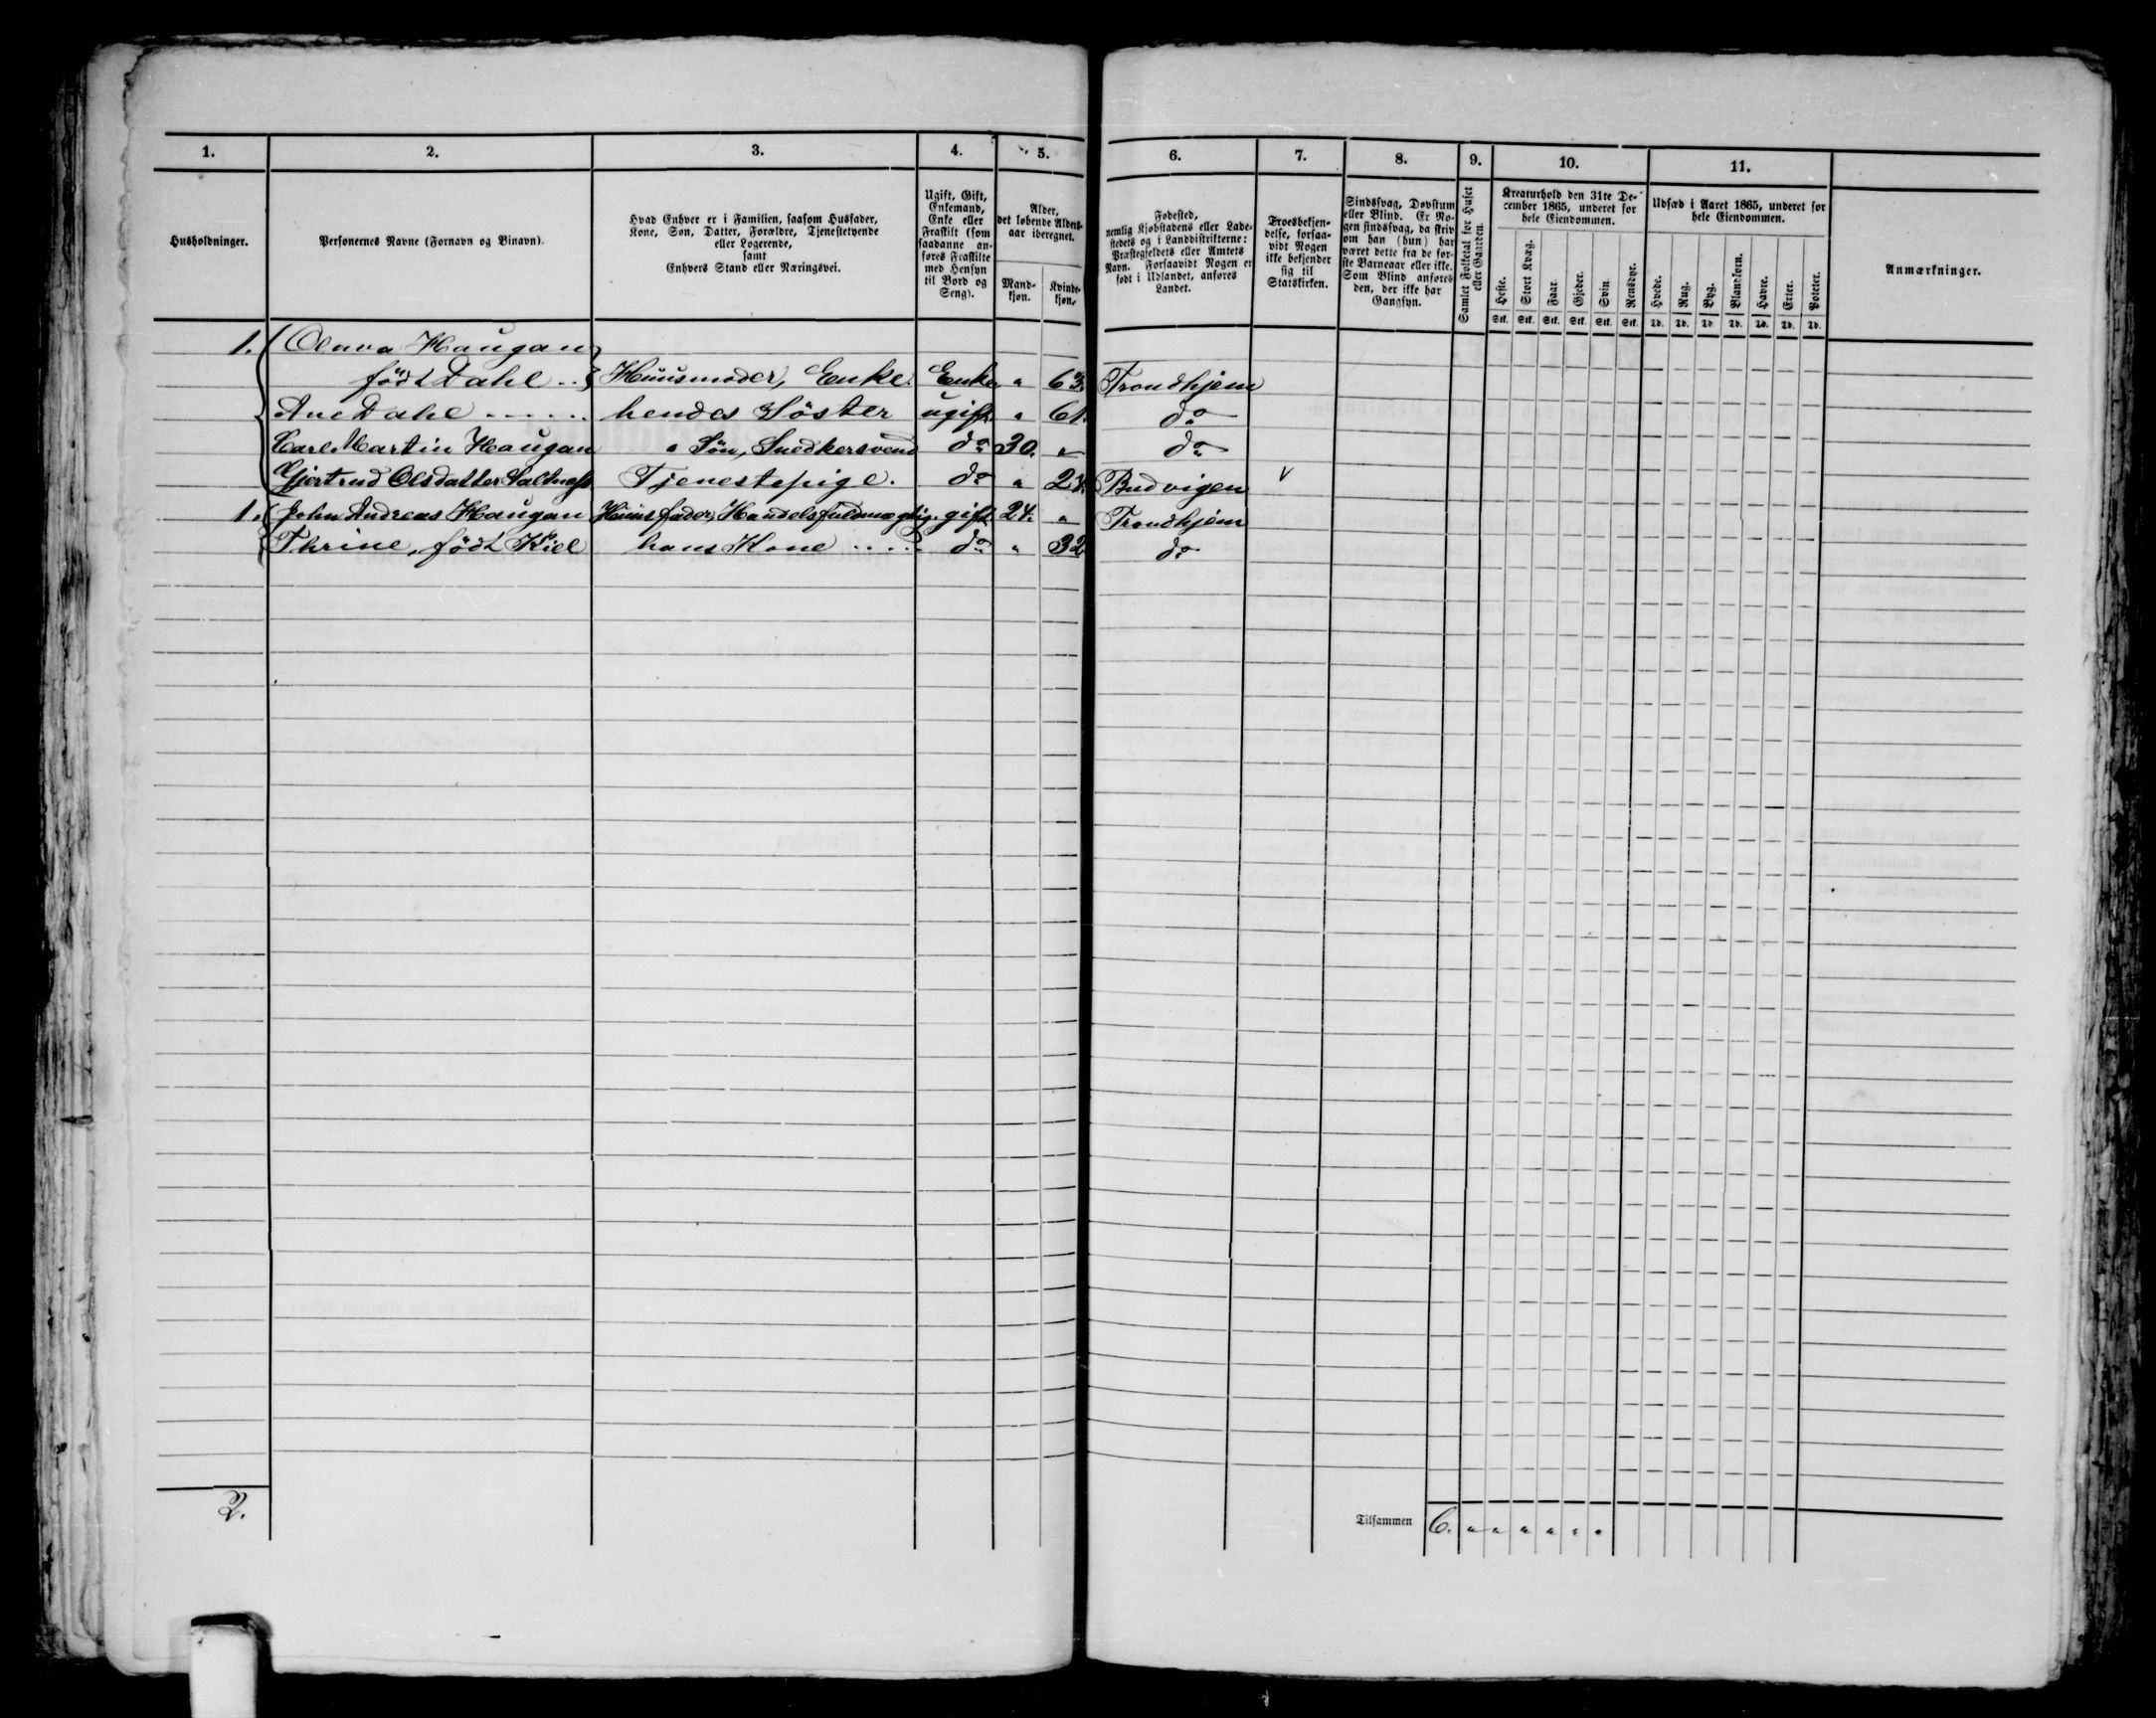 1. 2. 3. 4. 5. 6. 7. 8. 9. 10. 11.
Husholdninger.
Personernes Navne (Fornavn og Binavn).
Hvad Enhver er i Familien, saasom Husfader,
Kone, Søn, Datter, Forældre, Tjenestetyende
eller Logerende,
samt
Enhvers Stand eller Næringsvei.
Ugift, Gift,
Enkemand,
Enke eller
Fraskilt (som
saadanne an-
føres Fraskilte
med Hensyn
til Bord og
Seng).
Alder,
det løbende Alders-
aar iberegnet.
Mand-
kjøn.
Kvinde-
kjøn.
Fødested,
nemlig Kjøbstadens eller Lade-
stedets og i Landdistrikterne:
Præstegjeldets eller Amtets
Navn. Forsaavidt Nogen er
født i Udlandet, anføres
Landet.
Troesbekjen-
delse, forsaa-
vidt Nogen
ikke bekjender
sig til
Statskirken.
Sindssvag, Døvstum
eller Blind. Er No-
gen sindssvag, da skriv
om han (hun) har
været dette fra de før-
ste Barneaar eller ikke.
Som Blind anføres
den, der ikke har
Gangsyn.
Samlet Folketal for Huset
eller Gaarden.
Kreaturhold den 31te De-
cember 1865, underet for
hele Eiendommen.
Heste. Stort Kvæg. Faar. Gjeder. Svin. Rensdyr.
Stk. Stk. Stk. Stk. Stk. Stk.
Udsæd i Aaret 1865, underet for
hele Eiendommen.
Hvede. Rug. Byg. Blandkorn. Havre. Erter. Poteter.
Td. Td. Td. Td. Td. Td. Td.
Anmærkninger.
1. Olava Haugan
født Dahle .. Huusmoder, Enke. Enke " 63. Trondhjem
Ane Dahle ...... hendes Söster ugift " 61. do
Carl Martin Haugan " Sön, Snedkersvend do 30. " do
Gjertrud Olsdatter Saltnæss Tjenestepige. do " Budvigen v
1. John Andreas Haugan Huusfader, Handelsfuldmægtig. gift 24. " Trondhjem
Thrine, födt Kiel hans Kone ..... do " 32 do
2.
Tilsammen 6. " " " " " "